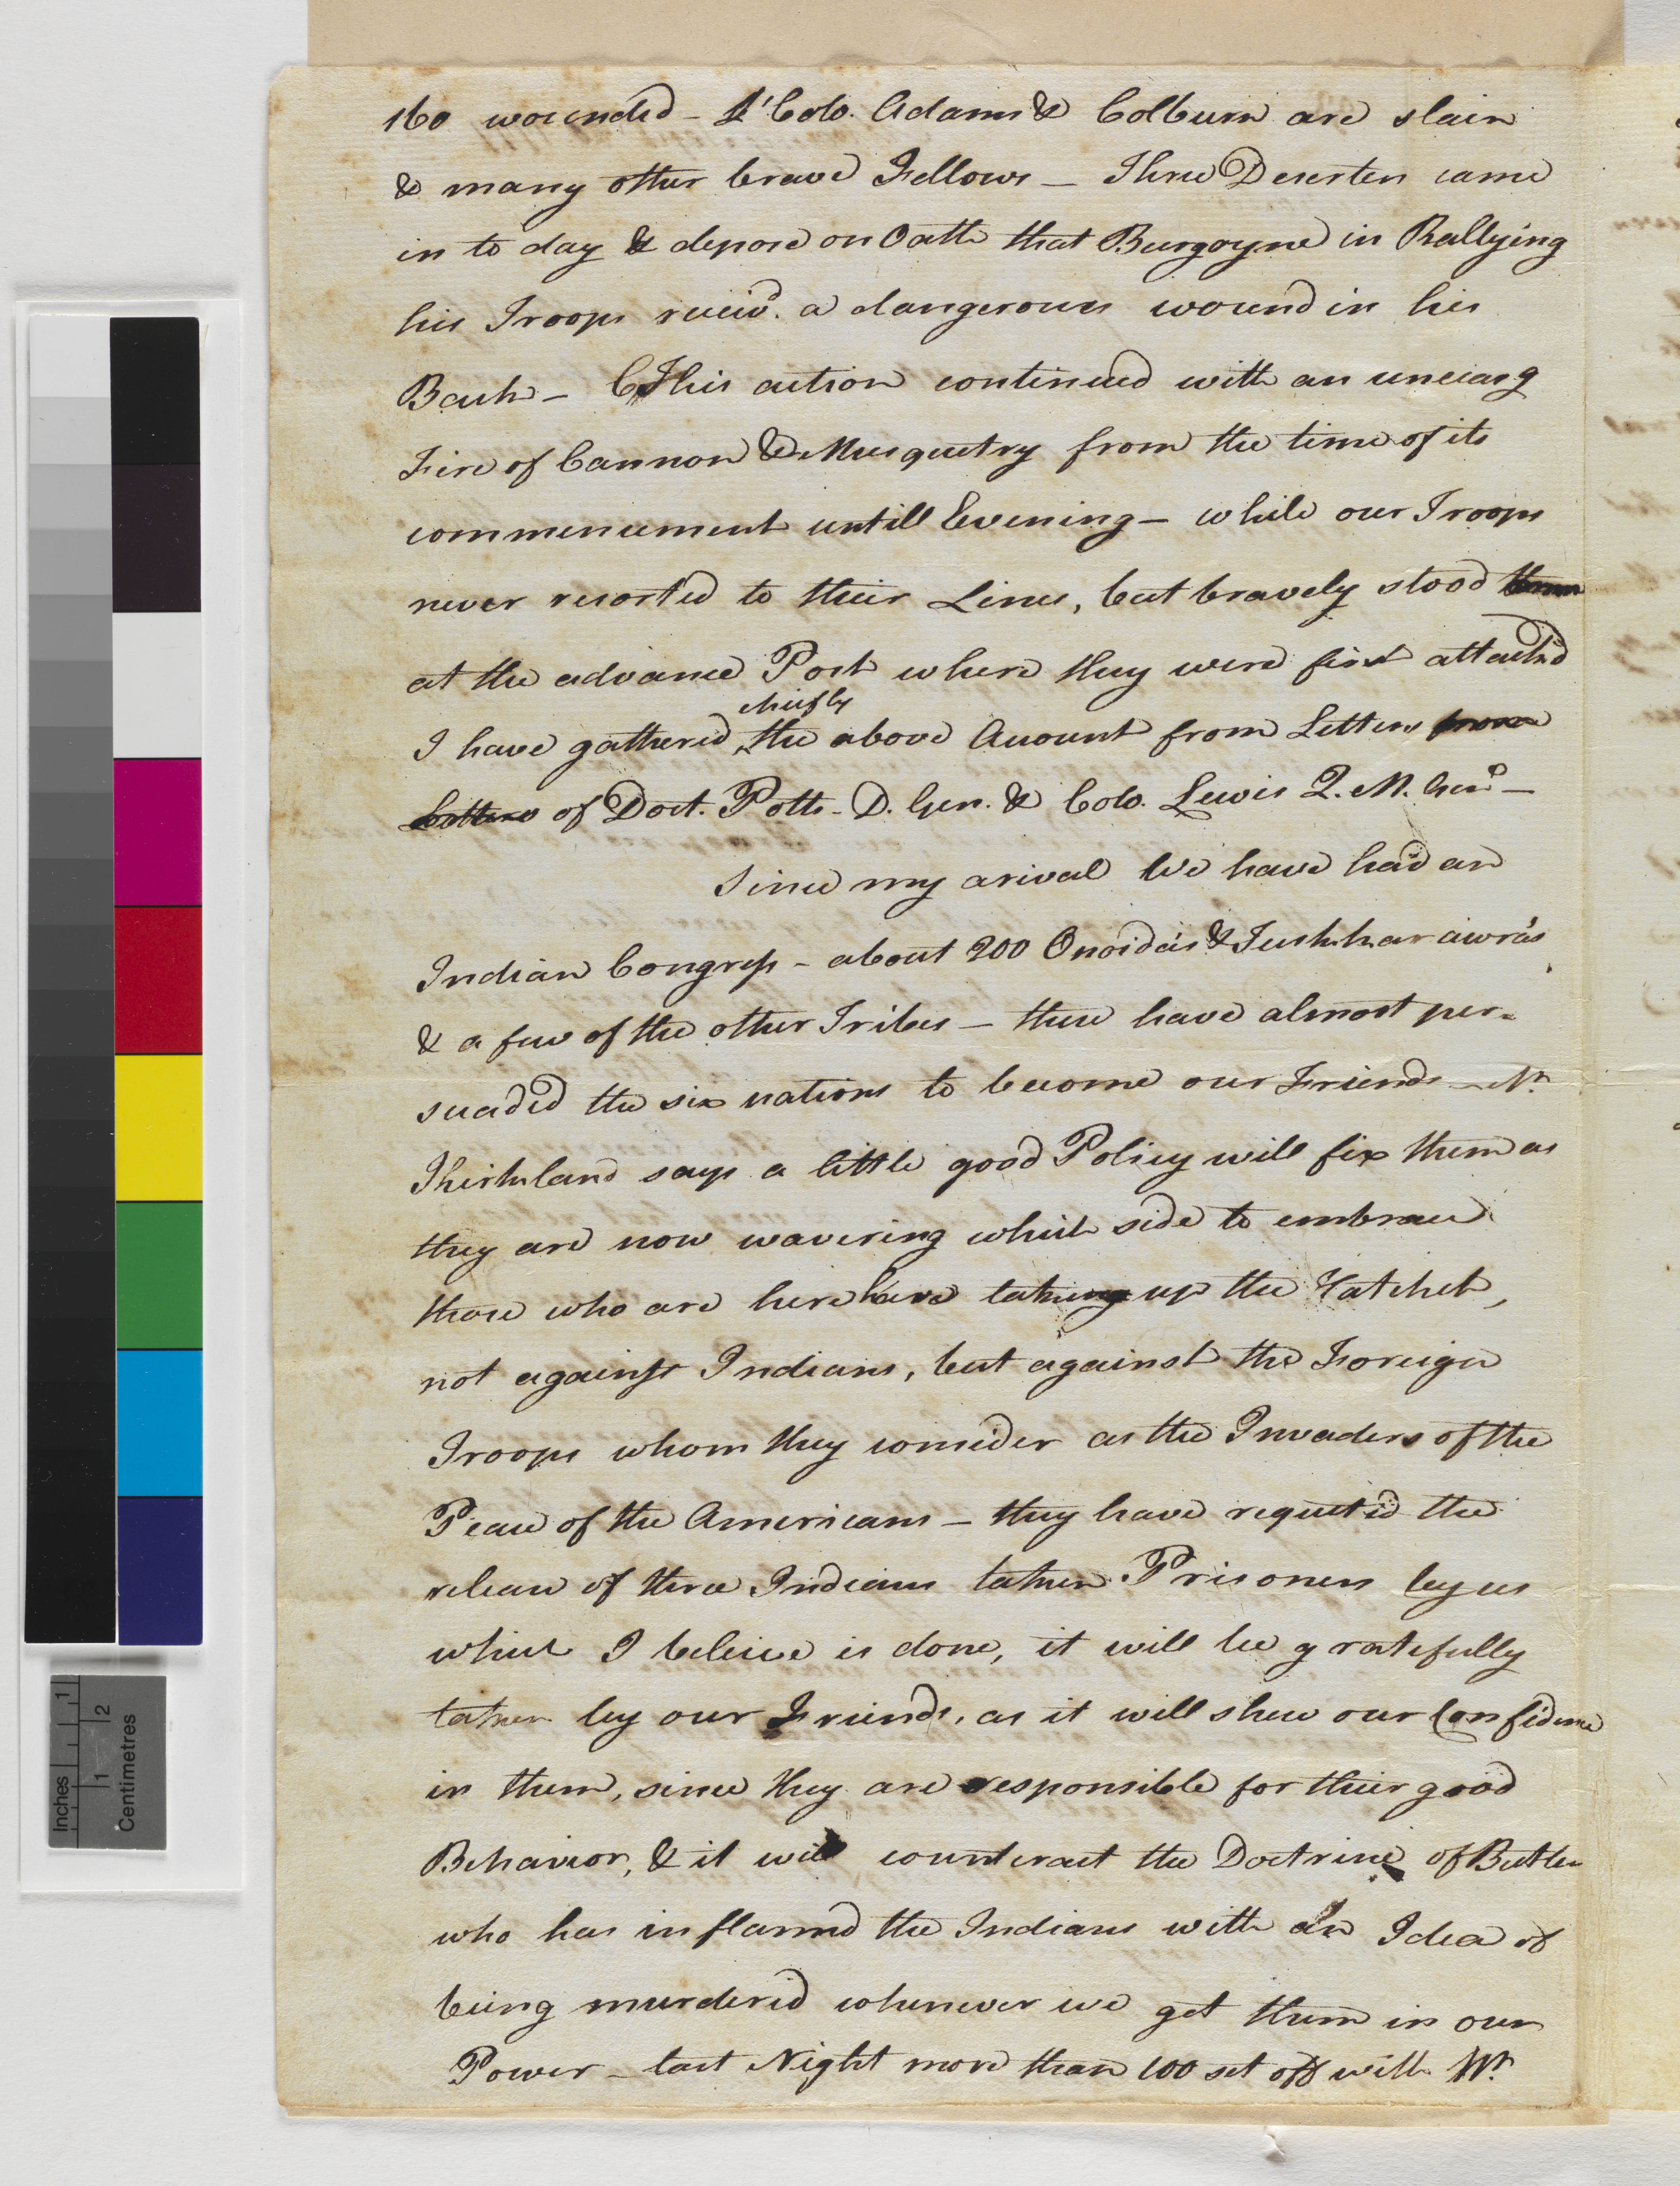 160 wounded - Lt Colo. Adams & Colburn are slain
& many other brave Fellows - Three Deserters came
in to day & depose on Oath that Burgoyne in Rallying
his Troops receiv'd. a dangerous wound in his
Back - This action continued with an unceasg
Fire of Cannon & Musquetry from the time of its
commencement untill Evening - while our Troops
never resorted to their Lines, but bravely stood
at the advance Post where they were first attack'd
chiefly
I have gathered the above Account from Letters from
Letters of Doct. Potts - D. Gen. & Colo. Lewis Q. M. Genl -
Since my arival We have had an
Indian Congress - about 200 Onoida's & Tuskharawra's
& a few of the other Tribes - these have almost per-
suaded the six nations to become our Friends - Mr.
Khirkland says a little good Policy will fix them as
they are now wavering which side to embrace
those who are here have taken up the Hatchet,
not against Indians, but against the Foreign
Troops whom they consider as the Invaders of the
Peace of the Americans - they have requested the
release of three Indians taken Prisoners by us
which I believe is done, it will be gratefully
taken by our Friends, as it will shew our Confidence
in them, since they are responsible for their good
Behavior, & it will counteract the Doctrine of Butler
who has inflamed the Indians with an Idea of
being murdered whenever we get them in our
Power - last Night more than 100 set off with Mr.
Inches
1
1
2
Centimetres